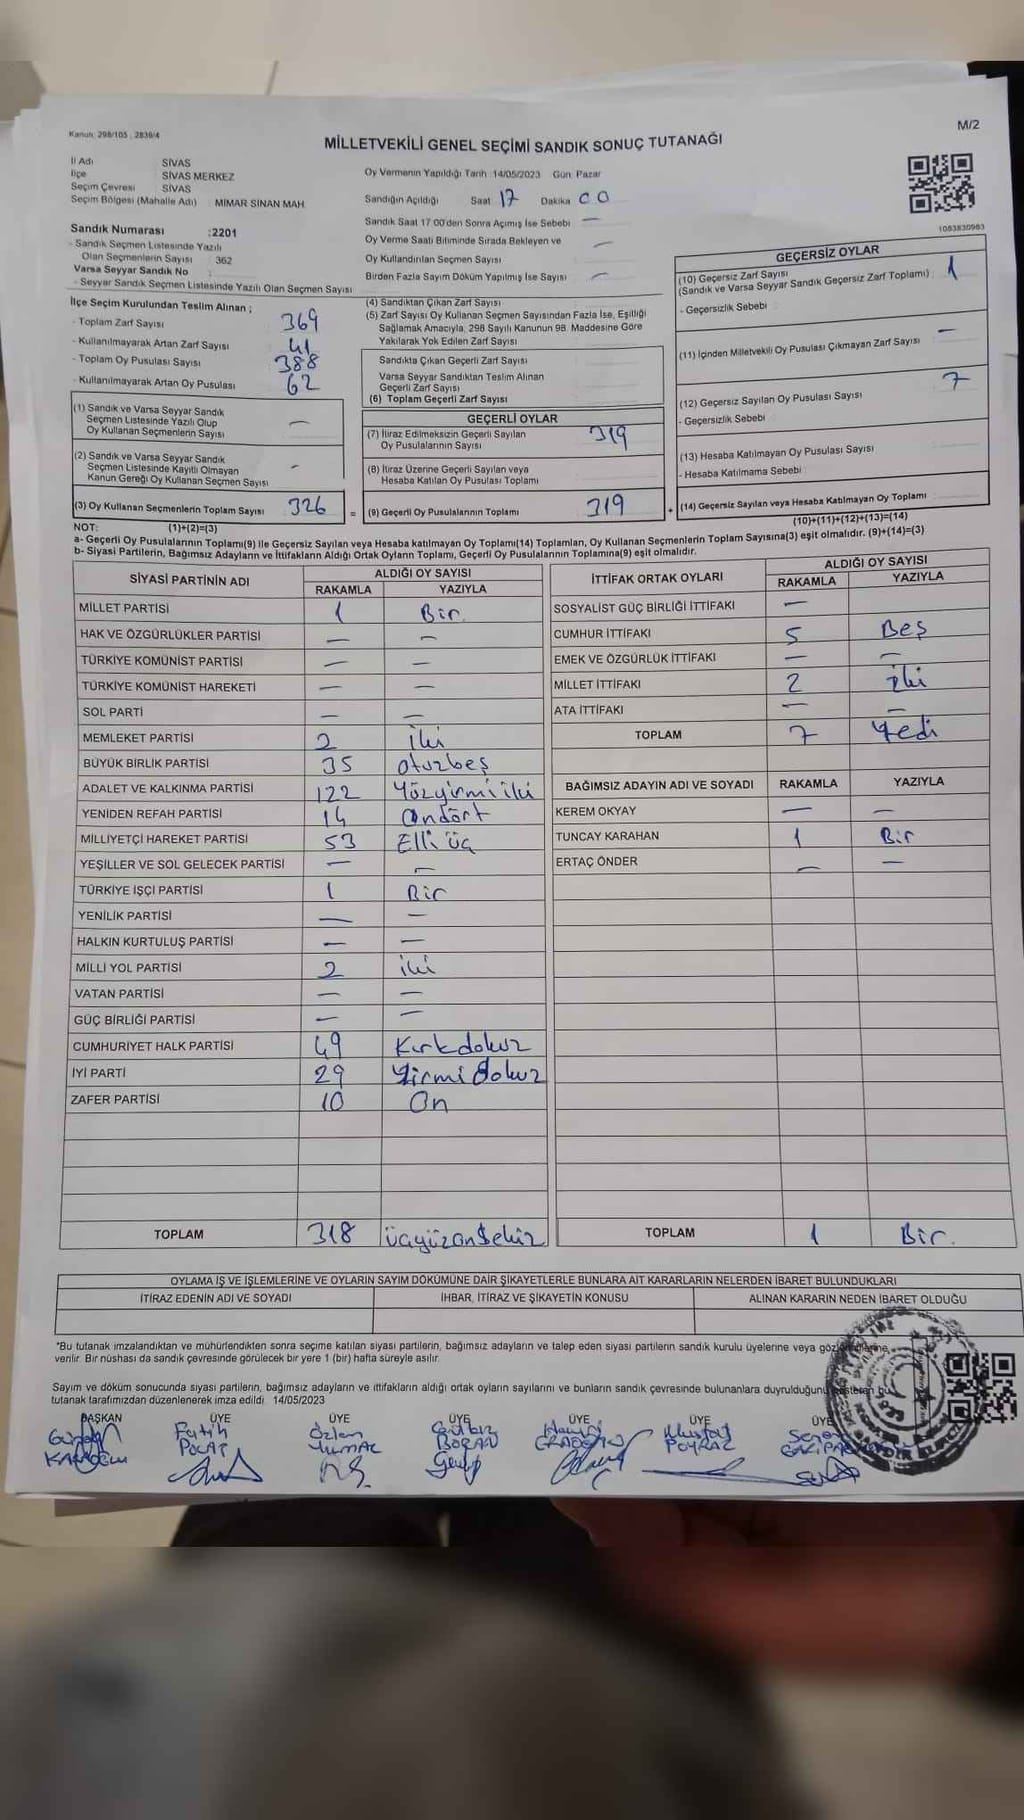 Kanun: 298/105 , 2839/4
M/2
MİLLETVEKİLİ GENEL SEÇİMİ SANDIK SONUÇ TUTANAĞI
İl Adı SİVAS
İlçe SİVAS MERKEZ
Seçim Çevresi SİVAS
Seçim Bölgesi (Mahalle Adı) MİMAR SİNAN MAH.
Sandık Numarası :2201
- Sandık Seçmen Listesinde Yazılı
Olan Seçmenlerin Sayısı : 362
Varsa Seyyar Sandık No :
- Seyyar Sandık Seçmen Listesinde Yazılı Olan Seçmen Sayısı
Oy Vermenin Yapıldığı Tarih 14/05/2023 Gün: Pazar
Sandığın Açıldığı Saat 17 Dakika 00
Sandık Saat 17:00'den Sonra Açımış İse Sebebi —
Oy Verme Saati Bitiminde Sırada Bekleyen ve
Oy Kullandırılan Seçmen Sayısı —
Birden Fazla Sayım Döküm Yapılmış İse Sayısı —
1083830983
İlçe Seçim Kurulundan Teslim Alınan ;
- Toplam Zarf Sayısı 369
- Kullanılmayarak Artan Zarf Sayısı 41
- Toplam Oy Pusulası Sayısı 388
- Kullanılmayarak Artan Oy Pusulası 62
(1) Sandık ve Varsa Seyyar Sandık
Seçmen Listesinde Yazılı Olup
Oy Kullanan Seçmenlerin Sayısı —
(2) Sandık ve Varsa Seyyar Sandık
Seçmen Listesinde Kayıtlı Olmayan
Kanun Gereği Oy Kullanan Seçmen Sayısı -
(3) Oy Kullanan Seçmenlerin Toplam Sayısı 326 =
(4) Sandıktan Çıkan Zarf Sayısı
(5) Zarf Sayısı Oy Kullanan Seçmen Sayısından Fazla İse, Eşitliği
Sağlamak Amacıyla, 298 Sayılı Kanunun 98. Maddesine Göre
Yakılarak Yok Edilen Zarf Sayısı
Sandıkta Çıkan Geçerli Zarf Sayısı
Varsa Seyyar Sandıktan Teslim Alınan
Geçerli Zarf Sayısı
(6) Toplam Geçerli Zarf Sayısı
GEÇERLİ OYLAR
(7) İtiraz Edilmeksizin Geçerli Sayılan
Oy Pusulalarının Sayısı 319
(8) İtiraz Üzerine Geçerli Sayılan veya
Hesaba Katılan Oy Pusulası Toplamı
(9) Geçerli Oy Pusulalarının Toplamı 319 +
GEÇERSİZ OYLAR
(10) Geçersiz Zarf Sayısı
(Sandık ve Varsa Seyyar Sandık Geçersiz Zarf Toplamı) : 1
- Geçersizlik Sebebi :
(11) İçinden Milletvekili Oy Pusulası Çıkmayan Zarf Sayısı —
(12) Geçersiz Sayılan Oy Pusulası Sayısı 7
- Geçersizlik Sebebi :
(13) Hesaba Katılmayan Oy Pusulası Sayısı
- Hesaba Katılmama Sebebi :
(14) Geçersiz Sayılan veya Hesaba Katılmayan Oy Toplamı
(10)+(11)+(12)+(13)=(14)
NOT: (1)+(2)=(3)
a- Geçerli Oy Pusulalarının Toplamı(9) ile Geçersiz Sayılan veya Hesaba katılmayan Oy Toplamı(14) Toplamları, Oy Kullanan Seçmenlerin Toplam Sayısına(3) eşit olmalıdır. (9)+(14)=(3)
b- Siyasi Partilerin, Bağımsız Adayların ve İttifakların Aldığı Ortak Oyların Toplamı, Geçerli Oy Pusulalarının Toplamına(9) eşit olmalıdır.
SİYASİ PARTİNİN ADI ALDIĞI OY SAYISI
RAKAMLA YAZIYLA
MİLLET PARTİSİ 1 Bir.
HAK VE ÖZGÜRLÜKLER PARTİSİ — —
TÜRKİYE KOMÜNİST PARTİSİ — —
TÜRKİYE KOMÜNİST HAREKETİ — —
SOL PARTİ — —
MEMLEKET PARTİSİ 2 İki
BÜYÜK BİRLİK PARTİSİ 35 otuzbeş
ADALET VE KALKINMA PARTİSİ 122 Yüzyirmi iki
YENİDEN REFAH PARTİSİ 14 Ondört
MİLLİYETÇİ HAREKET PARTİSİ 53 Elli üç
YEŞİLLER VE SOL GELECEK PARTİSİ — —
TÜRKİYE İŞÇİ PARTİSİ 1 Bir
YENİLİK PARTİSİ — —
HALKIN KURTULUŞ PARTİSİ — —
MİLLİ YOL PARTİSİ 2 iki
VATAN PARTİSİ — —
GÜÇ BİRLİĞİ PARTİSİ — —
CUMHURİYET HALK PARTİSİ 49 Kırkdokuz
İYİ PARTİ 29 Yirmi dokuz
ZAFER PARTİSİ 10 On
TOPLAM 318 üçyüzonsekiz
İTTİFAK ORTAK OYLARI ALDIĞI OY SAYISI
RAKAMLA YAZIYLA
SOSYALİST GÜÇ BİRLİĞİ İTTİFAKI —
CUMHUR İTTİFAKI 5 Beş
EMEK VE ÖZGÜRLÜK İTTİFAKI — —
MİLLET İTTİFAKI 2 iki
ATA İTTİFAKI — —
TOPLAM 7 Yedi
BAĞIMSIZ ADAYIN ADI VE SOYADI RAKAMLA YAZIYLA
KEREM OKYAY — —
TUNCAY KARAHAN 1 Bir
ERTAÇ ÖNDER — —
TOPLAM 1 Bir.
OYLAMA İŞ VE İŞLEMLERİNE VE OYLARIN SAYIM DÖKÜMÜNE DAİR ŞİKAYETLERLE BUNLARA AİT KARARLARIN NELERDEN İBARET BULUNDUKLARI
İTİRAZ EDENİN ADI VE SOYADI İHBAR, İTİRAZ VE ŞİKAYETİN KONUSU ALINAN KARARIN NEDEN İBARET OLDUĞU
*Bu tutanak imzalandıktan ve mühürlendikten sonra seçime katılan siyasi partilerin, bağımsız adayların ve talep eden siyasi partilerin sandık kurulu üyelerine veya
verilir. Bir nüshası da sandık çevresinde görülecek bir yere 1 (bir) hafta süreyle asılır.
Sayım ve döküm sonucunda siyasi partilerin, bağımsız adayların ve ittifakların aldığı ortak oyların sayılarını ve bunların sandık çevresinde bulunanlara duyurulduğunu gösteren bu
tutanak tarafımızdan düzenlenerek imza edildi. 14/05/2023
BAŞKAN ÜYE ÜYE ÜYE ÜYE ÜYE ÜYE
Fatih Özlem Gülbiz Mustafa
POLAT BORAN POYRAZ